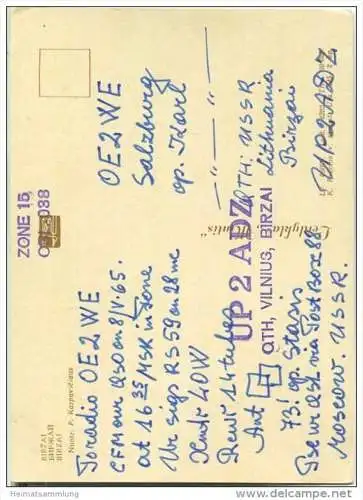 BIRŽAI
БИРЖАЙ
BIRZAI
Nuotr. P. Karpavičiaus
ZONE 15
OBL 038
To radio OE2WE
CFM our QSO on 8/V.65.
at 16 35 MSK in fone
Ur sigs RS 59 on 28 mc
Xmtr 40W
Rcvr 14 tubes
Ant
73! op. Stasis
Pse ur QSL via Post Box 88
Moscow. USSR.
OE2WE
Salzburg
op. Karl
— " — " —
UP 2 ADZ
QTH, VILNIUS, BIRZAI
QTH: USSR
Lithuania
Birzai
UP2ADZ
Heimatsammlung